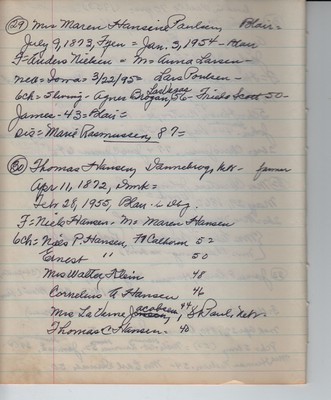 (29) Mrs Maren Hansine Paulsen, Blair=
July 9, 1873, Fyen = Jan. 3, 1954 - Blair
F= Anders Nielsen = M= Anna Larsen-
med= Iowa= 3/22/95= Lars Poulsen-
6ch= 5 living - Agnes Brogan, Las Vegas 56 - Frieda Scott 50-
James - 43= Blair=
Sis= Marie Rasmussen, 87=
(30) Thomas Hansen, Dannebrog, Nebr - farmer
Apr 11, 1872, Dmk=
Feb 28, 1955, Blair
F= Niels Hansen - M= Maren Hansen
6ch= Niels P. Hansen, Ft Calhoun 52
Ernest " 50
Mrs Walter Klein 48
Cornelius A Hansen 46
Mrs La Verne Jacobsen 44, St Paul, Nebr
Thomas C Hansen - 40